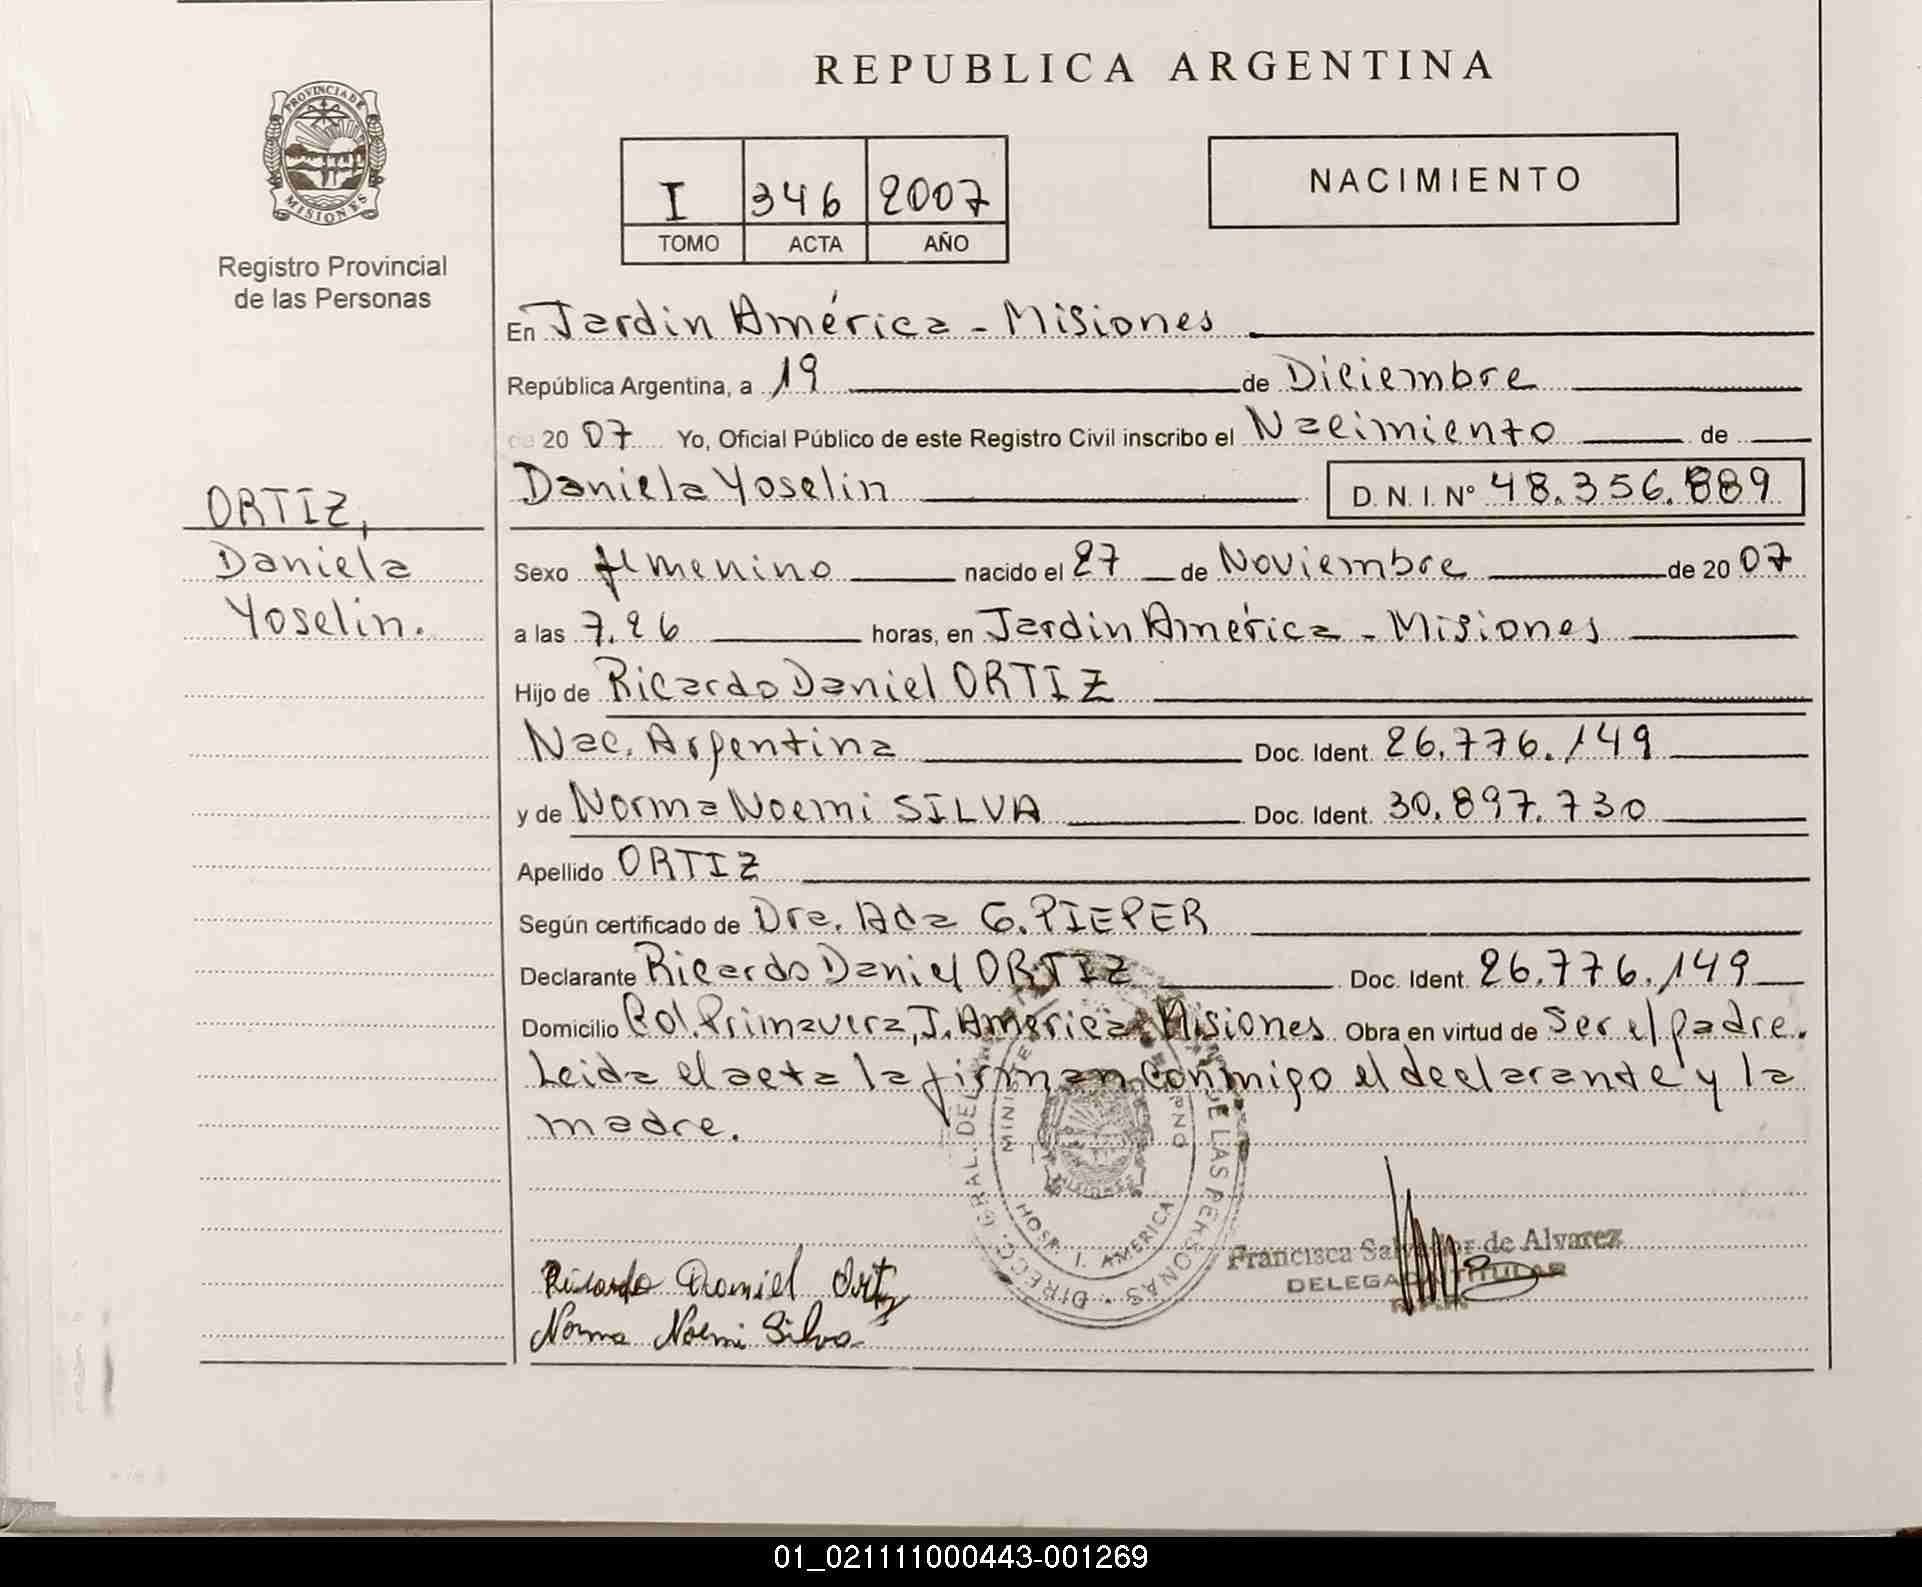 REPUBLICA ARGENTINA
PROVINCIA DE
MISIONES
Registro Provincial
de las Personas
I 346 2007
TOMO ACTA AÑO
NACIMIENTO
En Jardin América - Misiones
República Argentina, a 19 de Diciembre
de 20 07 Yo, Oficial Público de este Registro Civil inscribo el Nacimiento de
Daniela Yoselin D.N.I. Nº 48.356.889
ORTIZ,
Daniela
Yoselin.
Sexo femenino nacido el 27 de Noviembre de 20 07
a las 7.26 horas, en Jardin América - Misiones
Hijo de Ricardo Daniel ORTIZ
Nac. Argentina Doc. Ident. 26.776.149
y de Norma Noemi SILVA Doc. Ident. 30.897.730
Apellido ORTIZ
Según certificado de Dra. Ada G. PIEPER
Declarante Ricardo Daniel ORTIZ Doc. Ident. 26.776.149
Domicilio Col. Primavera, J. America - Misiones Obra en virtud de Ser el padre.
Leida el acta la firman conmigo el declarante y la
madre.
DIRECC. GRAL. DEL DE LAS PERSONAS
HOSP. J. AMERICA
MISIONES
Francisca Salvador de Alvarez
DELEGADA TITULAR
Ricardo Daniel Ortiz
Norma Noemi Silva
01_021111000443-001269